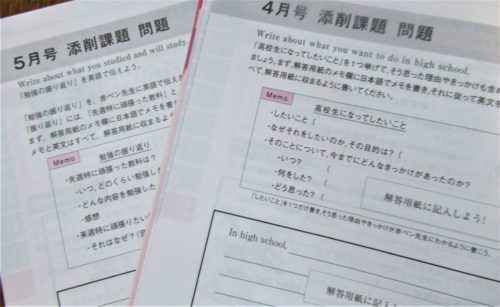 5月号 添削課題 問題
Write about what you studied and will study.
「勉強の振り返り」を英語で伝えよう。
「勉強の振り返り」を、赤ペン先生に英語で伝え
「振り返り」には、「先週特に頑張った教科」と
まず、解答用紙のメモ欄に日本語でメモを書
メモと英文はすべて、解答用紙に収まるよ
Memo
勉強の振り返り
・先週特に頑張った教科は？
・いつ、どのくらい勉強した
・どんな内容を勉強した
・感想
・来週特に頑張りたい
・それはなぜ？
4月号 添削課題 問題
Write about what you want to do in high school.
「高校生になってしたいこと」を1つ挙げて、そう思った理由やきっかけも含め
ましょう。まず、解答用紙のメモ欄に日本語でメモを書き、それに従って英文
べて、解答用紙に収まるように書いてください。
Memo
高校生になってしたいこと
・したいこと（
・なぜそれをしたいのか、その目的は？（
・そのことについて、今までにどんなきっかけがあったのか？
・いつ？（
・何をした？（
・どう思った？（
解答用紙に記入しよう！
「したいこと」を1つだけ書き、そう思った理由やきっかけが赤ペン先生にわかるように書こう。
In high school,
解答用紙に記入